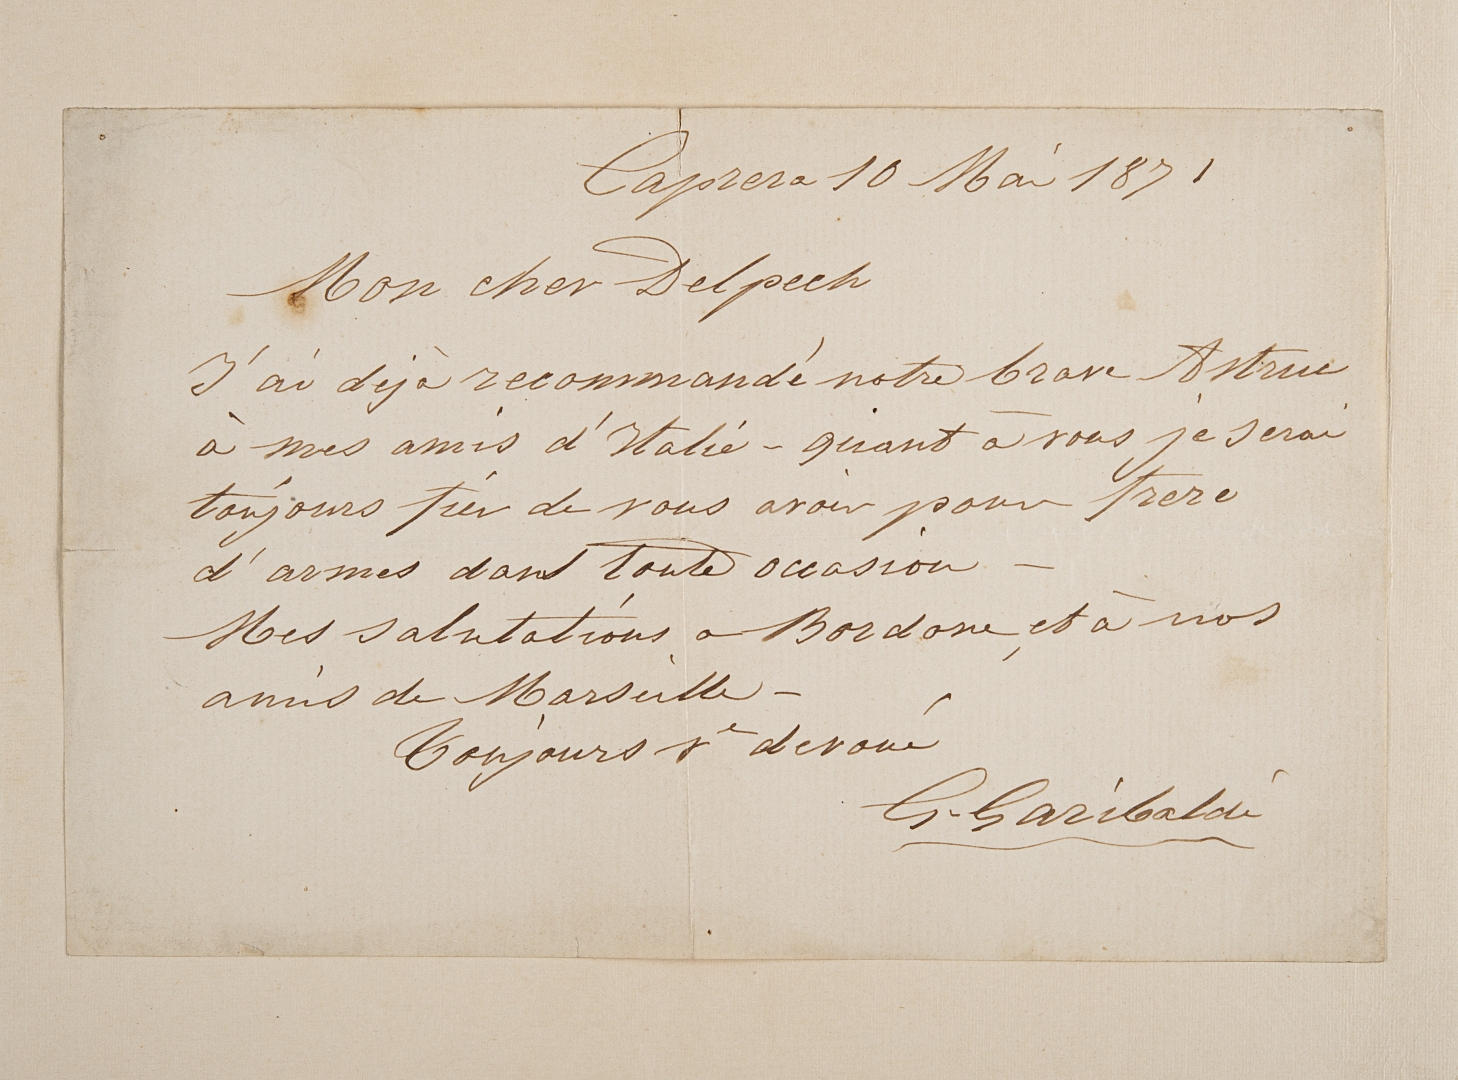 Caprera 10 Mai 1871
Mon cher Delpech
J'ai dejà recommandé notre brave Astruc
à mes amis d'Italie - quant à vous je serai
toujours fier de vous avoir pour frere
d'armes dans toute occasion -
Mes salutations a Bordone, et à nos
amis de Marseille -
Toujours ve devoué
G. Garibaldi